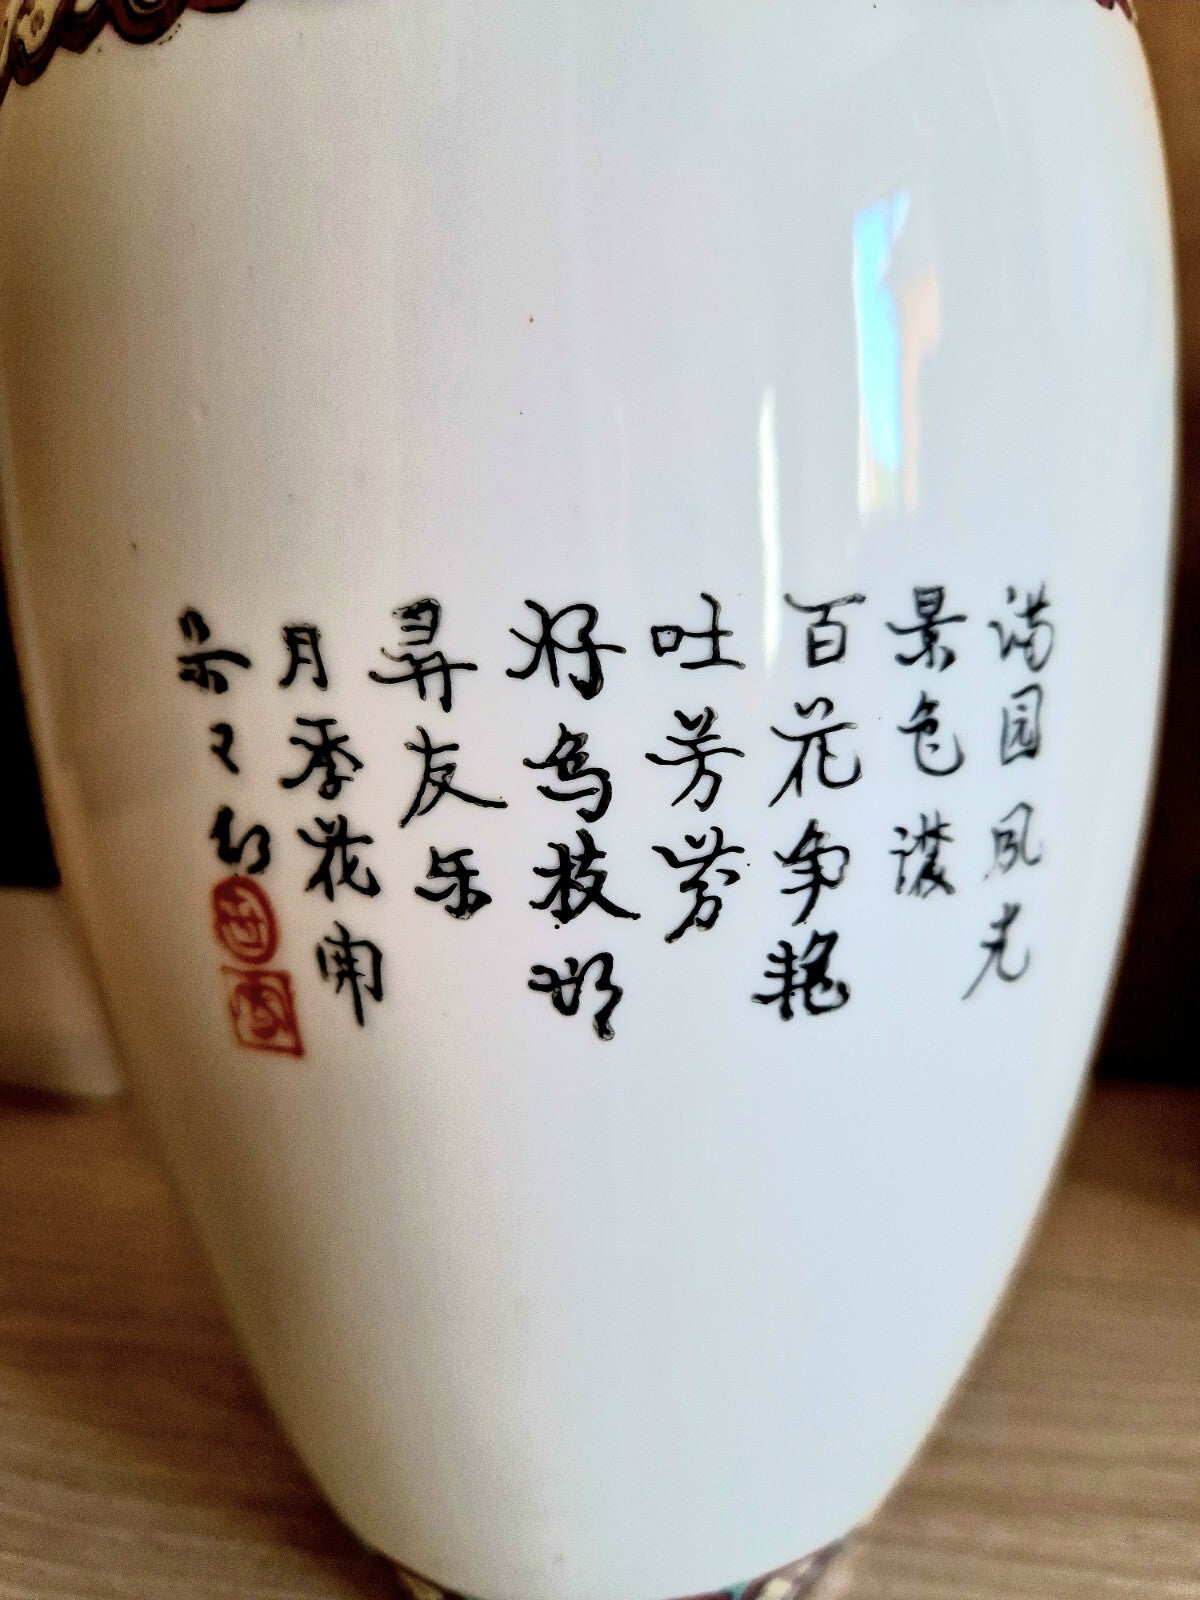 满园风光
景色浓
百花争艳
吐芳芬
好鸟枝
寻友乐
月季花开